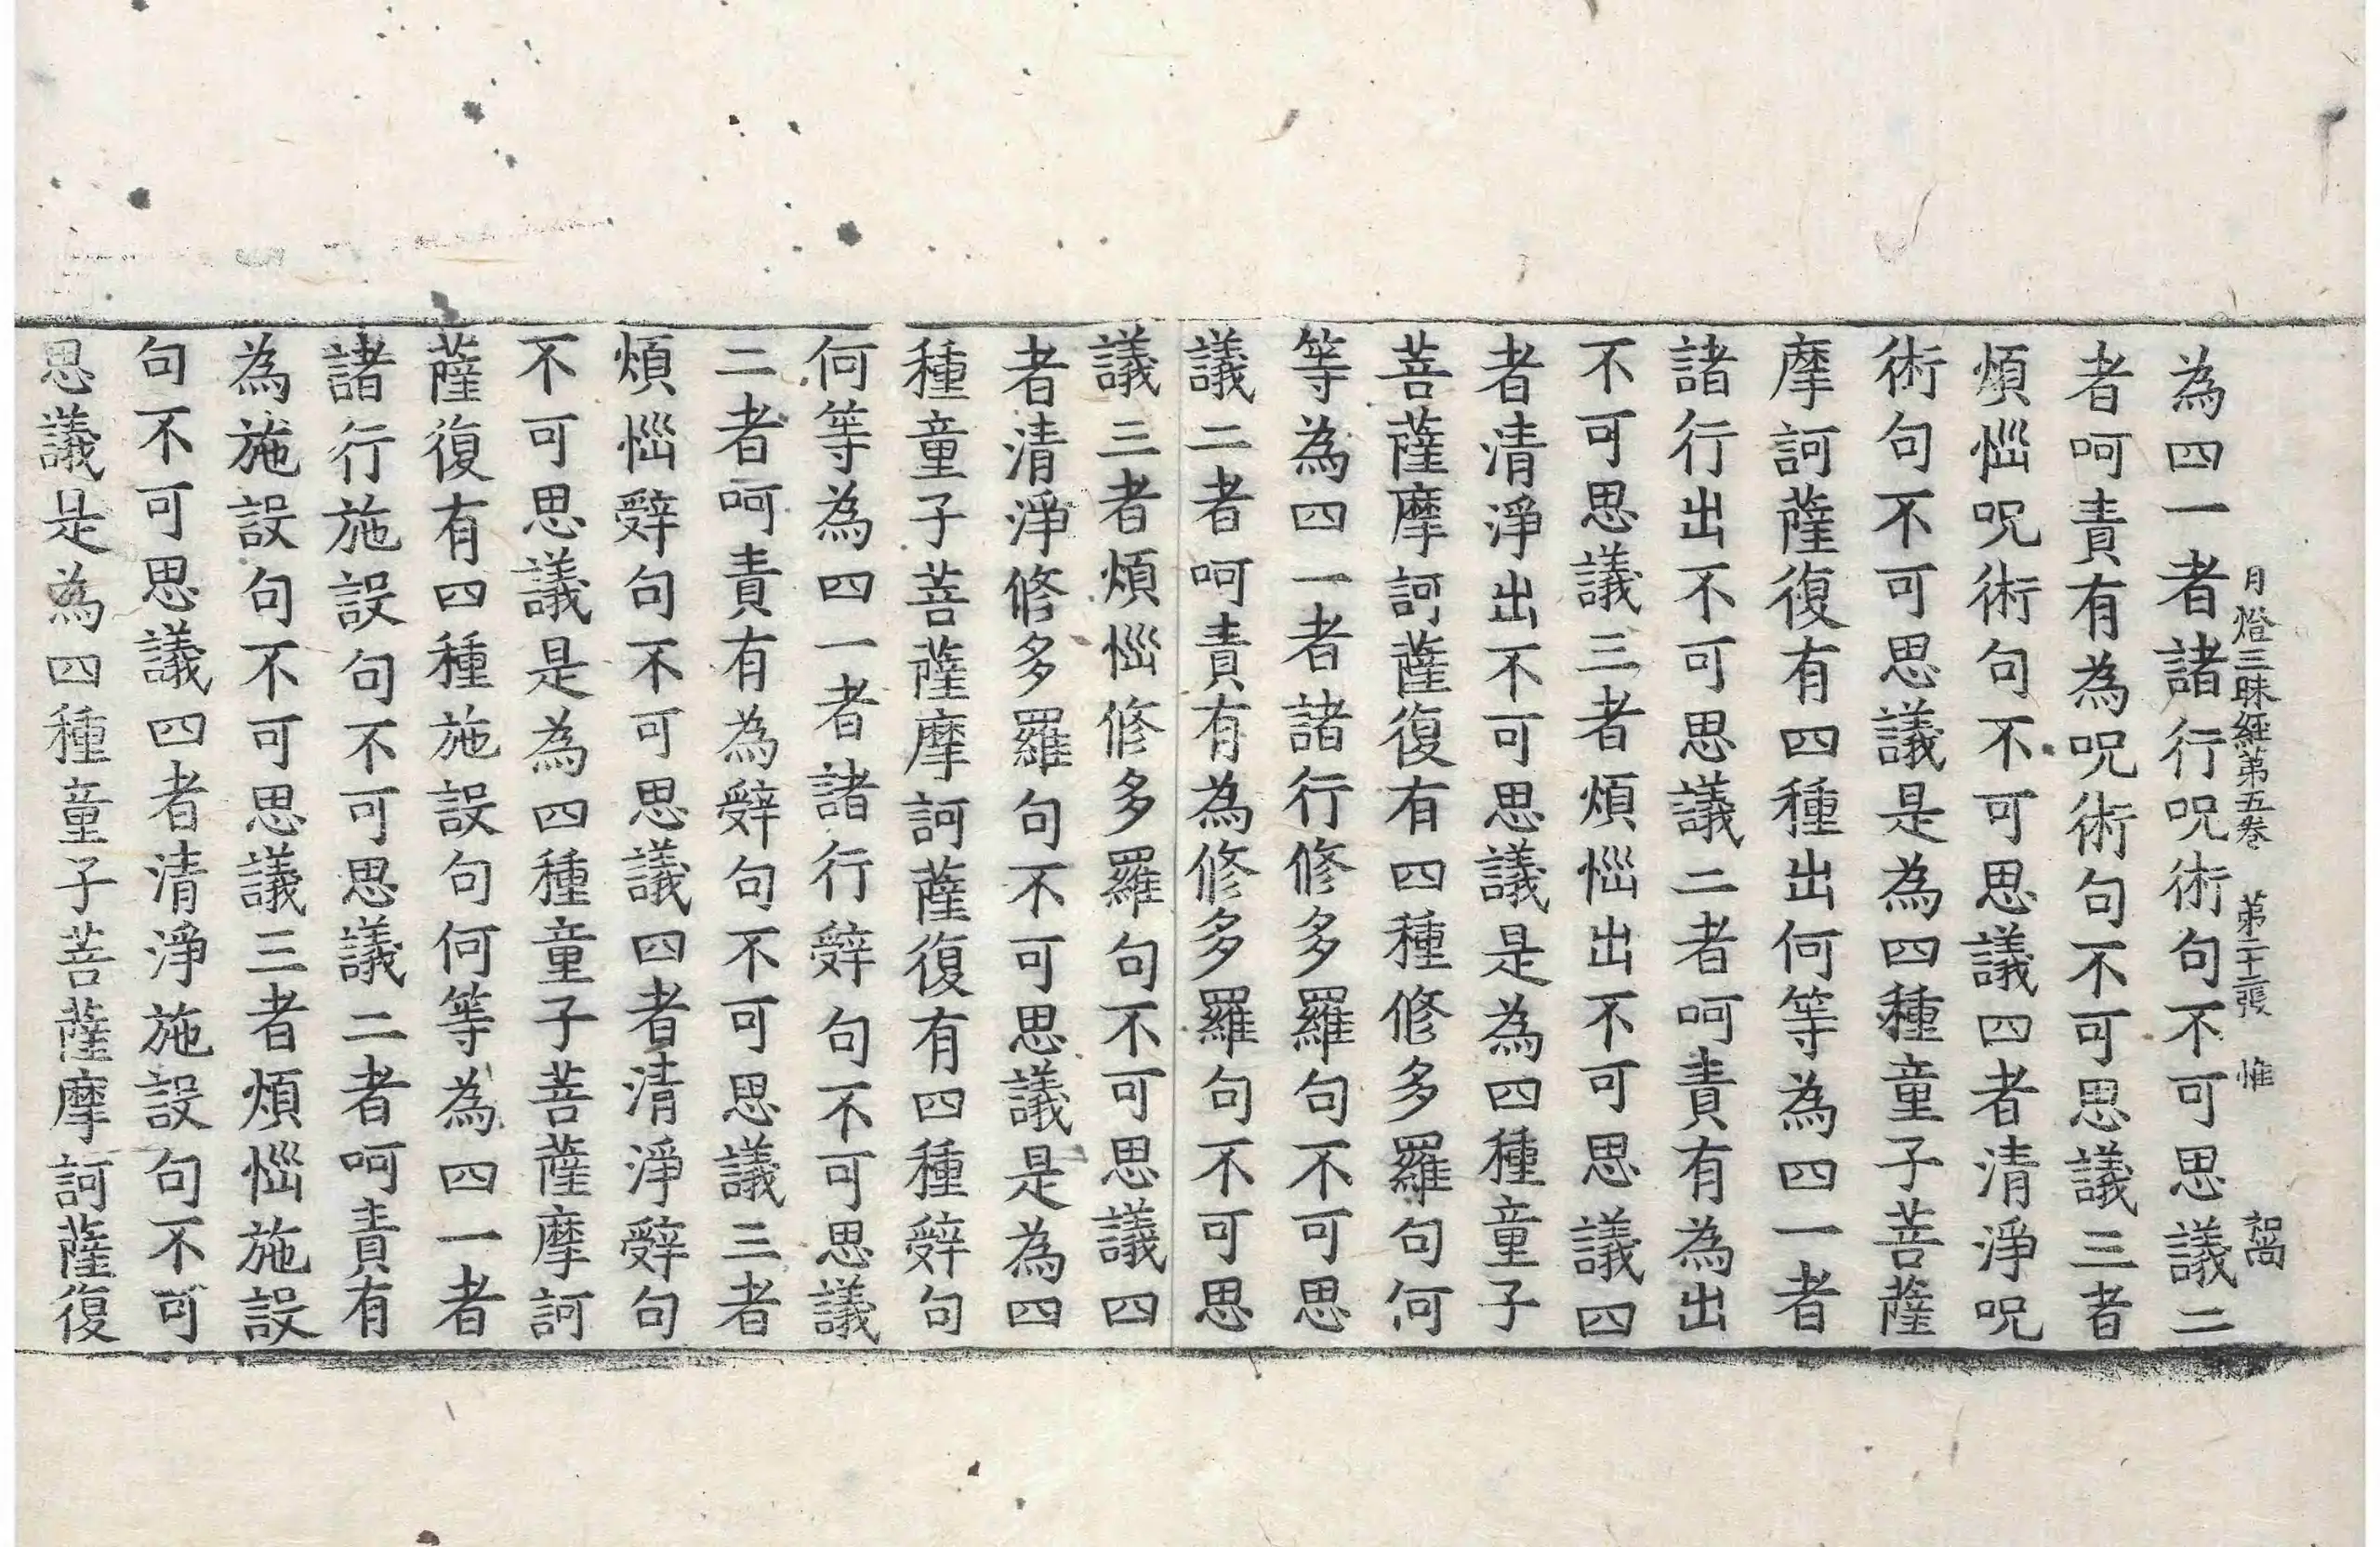 月燈三昧經第五卷　第二十二張　惟
為四一者諸行呪術句不可思議二
者呵責有為呪術句不可思議三者
煩惱呪術句不可思議四者清淨呪
術句不可思議是為四種童子菩薩
摩訶薩復有四種出何等為四一者
諸行出不可思議二者呵責有為出
不可思議三者煩惱出不可思議四
者清淨出不可思議是為四種童子
菩薩摩訶薩復有四種修多羅句何
等為四一者諸行修多羅句不可思
議二者呵責有為修多羅句不可思
議三者煩惱修多羅句不可思議四
者清淨修多羅句不可思議是為四
種童子菩薩摩訶薩復有四種辤句
何等為四一者諸行辤句不可思議
二者呵責有為辤句不可思議三者
煩惱辤句不可思議四者清淨辤句
不可思議是為四種童子菩薩摩訶
薩復有四種施設句何等為四一者
諸行施設句不可思議二者呵責有
為施設句不可思議三者煩惱施設
句不可思議四者清淨施設句不可
思議是為四種童子菩薩摩訶薩復